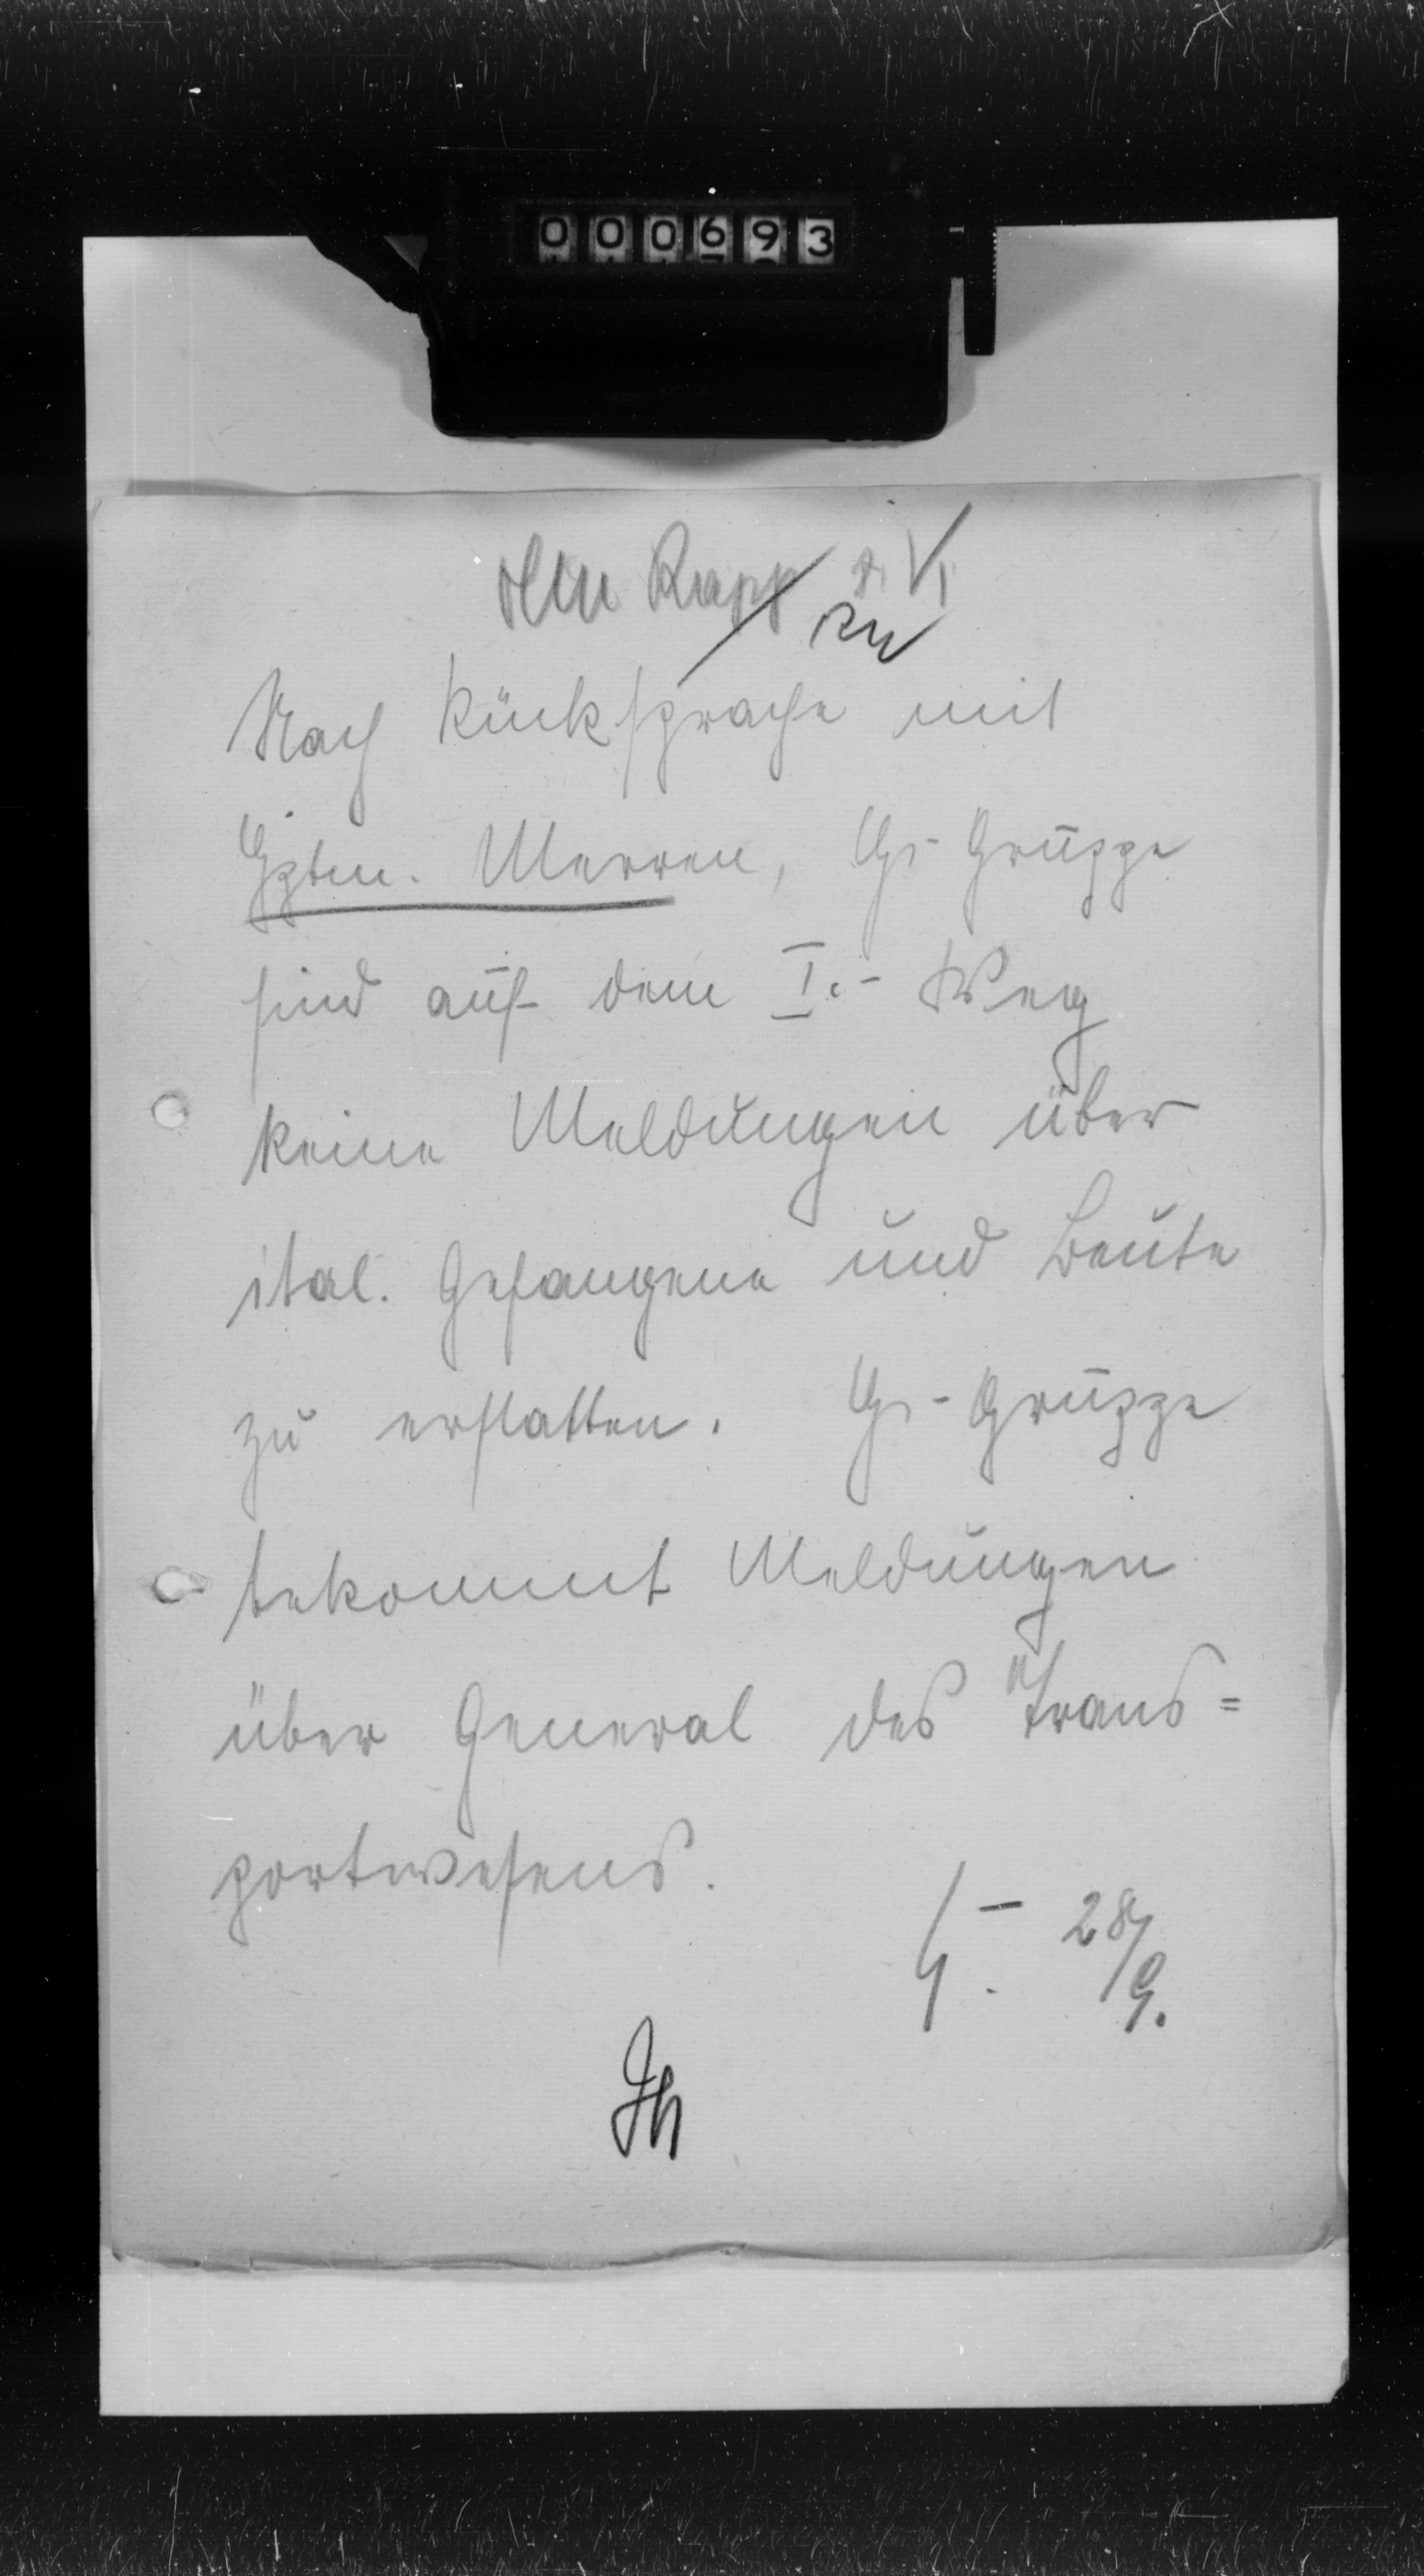 000693
Herrn Rapp
Nach Rücksprache mit
Hptm. Merren, Hs-Gruppe
sind auf dem I.- Weg
keine Meldungen über
ital. Gefangene und Beute
zu erstatten. Hs-Gruppe
bekommt Meldungen
über General des Trans=
portwesens.
28/9.